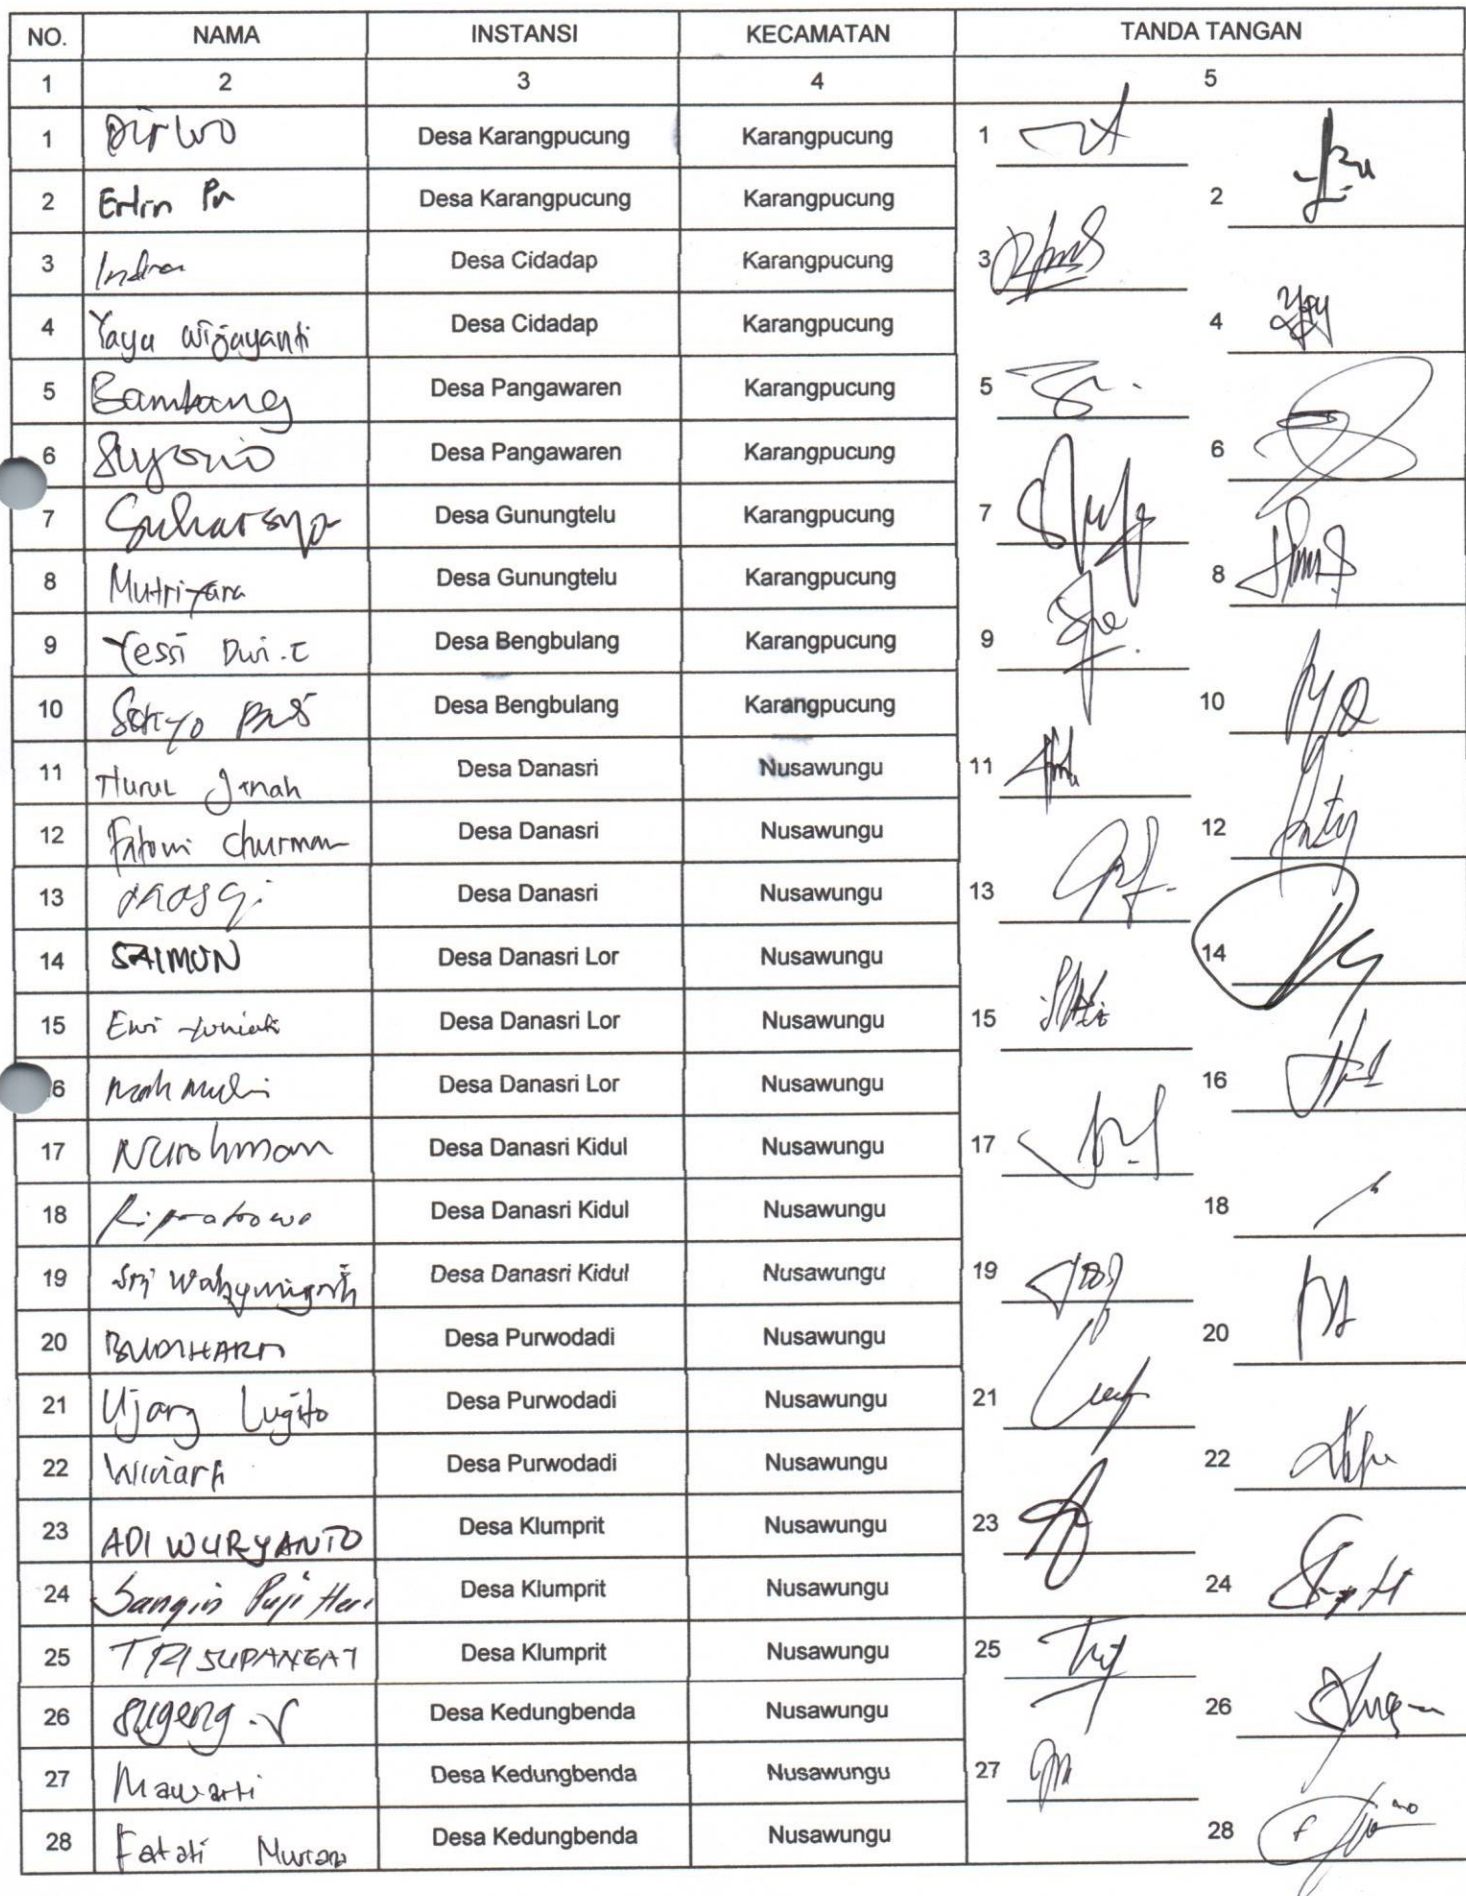 NO. NAMA INSTANSI KECAMATAN TANDA TANGAN
1 2 3 4 5
1 Dirwo Desa Karangpucung Karangpucung 1
2 Erlin Desa Karangpucung Karangpucung 2
3 Indra Desa Cidadap Karangpucung 3
4 Yayu Wijayanti Desa Cidadap Karangpucung 4
5 Bambang Desa Pangawaren Karangpucung 5
6 Suyono Desa Pangawaren Karangpucung 6
7 Suharsyo Desa Gunungtelu Karangpucung 7
8 Desa Gunungtelu Karangpucung 8
9 Yessi Dwi. E Desa Bengbulang Karangpucung 9
10 Desa Bengbulang Karangpucung 10
11 Nurul Janah Desa Danasri Nusawungu 11
12 Fatoni Churman Desa Danasri Nusawungu 12
13 Desa Danasri Nusawungu 13
14 SAIMUN Desa Danasri Lor Nusawungu 14
15 Eni Yuniati Desa Danasri Lor Nusawungu 15
Desa Danasri Lor Nusawungu 16
17 Nurohman Desa Danasri Kidul Nusawungu 17
18 Desa Danasri Kidul Nusawungu 18
19 Sri Wahyuningsih Desa Danasri Kidul Nusawungu 19
20 BUDIHARTO Desa Purwodadi Nusawungu 20
21 Ujang Lugito Desa Purwodadi Nusawungu 21
22 Winarti Desa Purwodadi Nusawungu 22
23 ADI WURYANTO Desa Klumprit Nusawungu 23
24 Sangin Puji Hari Desa Klumprit Nusawungu 24
25 TRI SUPANGAT Desa Klumprit Nusawungu 25
26 Sugeng Desa Kedungbenda Nusawungu 26
27 Mawarti Desa Kedungbenda Nusawungu 27
28 Fatati Desa Kedungbenda Nusawungu 28